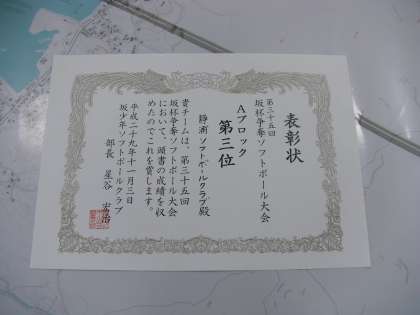 表彰状
第三十五回
坂杯争奪ソフトボール大会
Aブロック
第三位
静浦ソフトボールクラブ殿
貴チームは、第三十五回
坂杯争奪ソフトボール大会
において、頭書の成績を収
めたのでこれを賞します。
平成二十九年十一月三日
坂少年ソフトボールクラブ
部長 星谷